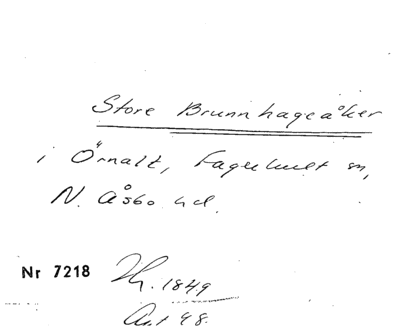 Store Brunnhageåker
i Örnalt, Fagerhult sn,
N. Åsbo hd.
Nr 7218
1849
48.